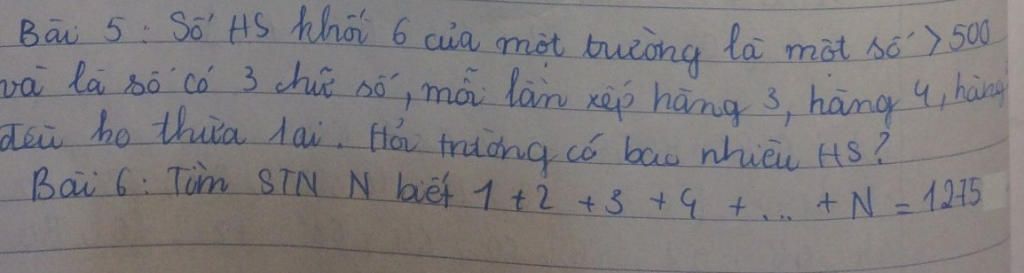 Bài 5 : Số HS khối 6 của một trường là một số > 500
và là số có 3 chữ số, mỗi lần xếp hàng 3, hàng 4, hàng
đều ko thừa 1 ai. Hỏi trường có bao nhiêu HS?
Bài 6 : Tìm STN N biết 1 + 2 + 3 + 4 + ... + N = 1275